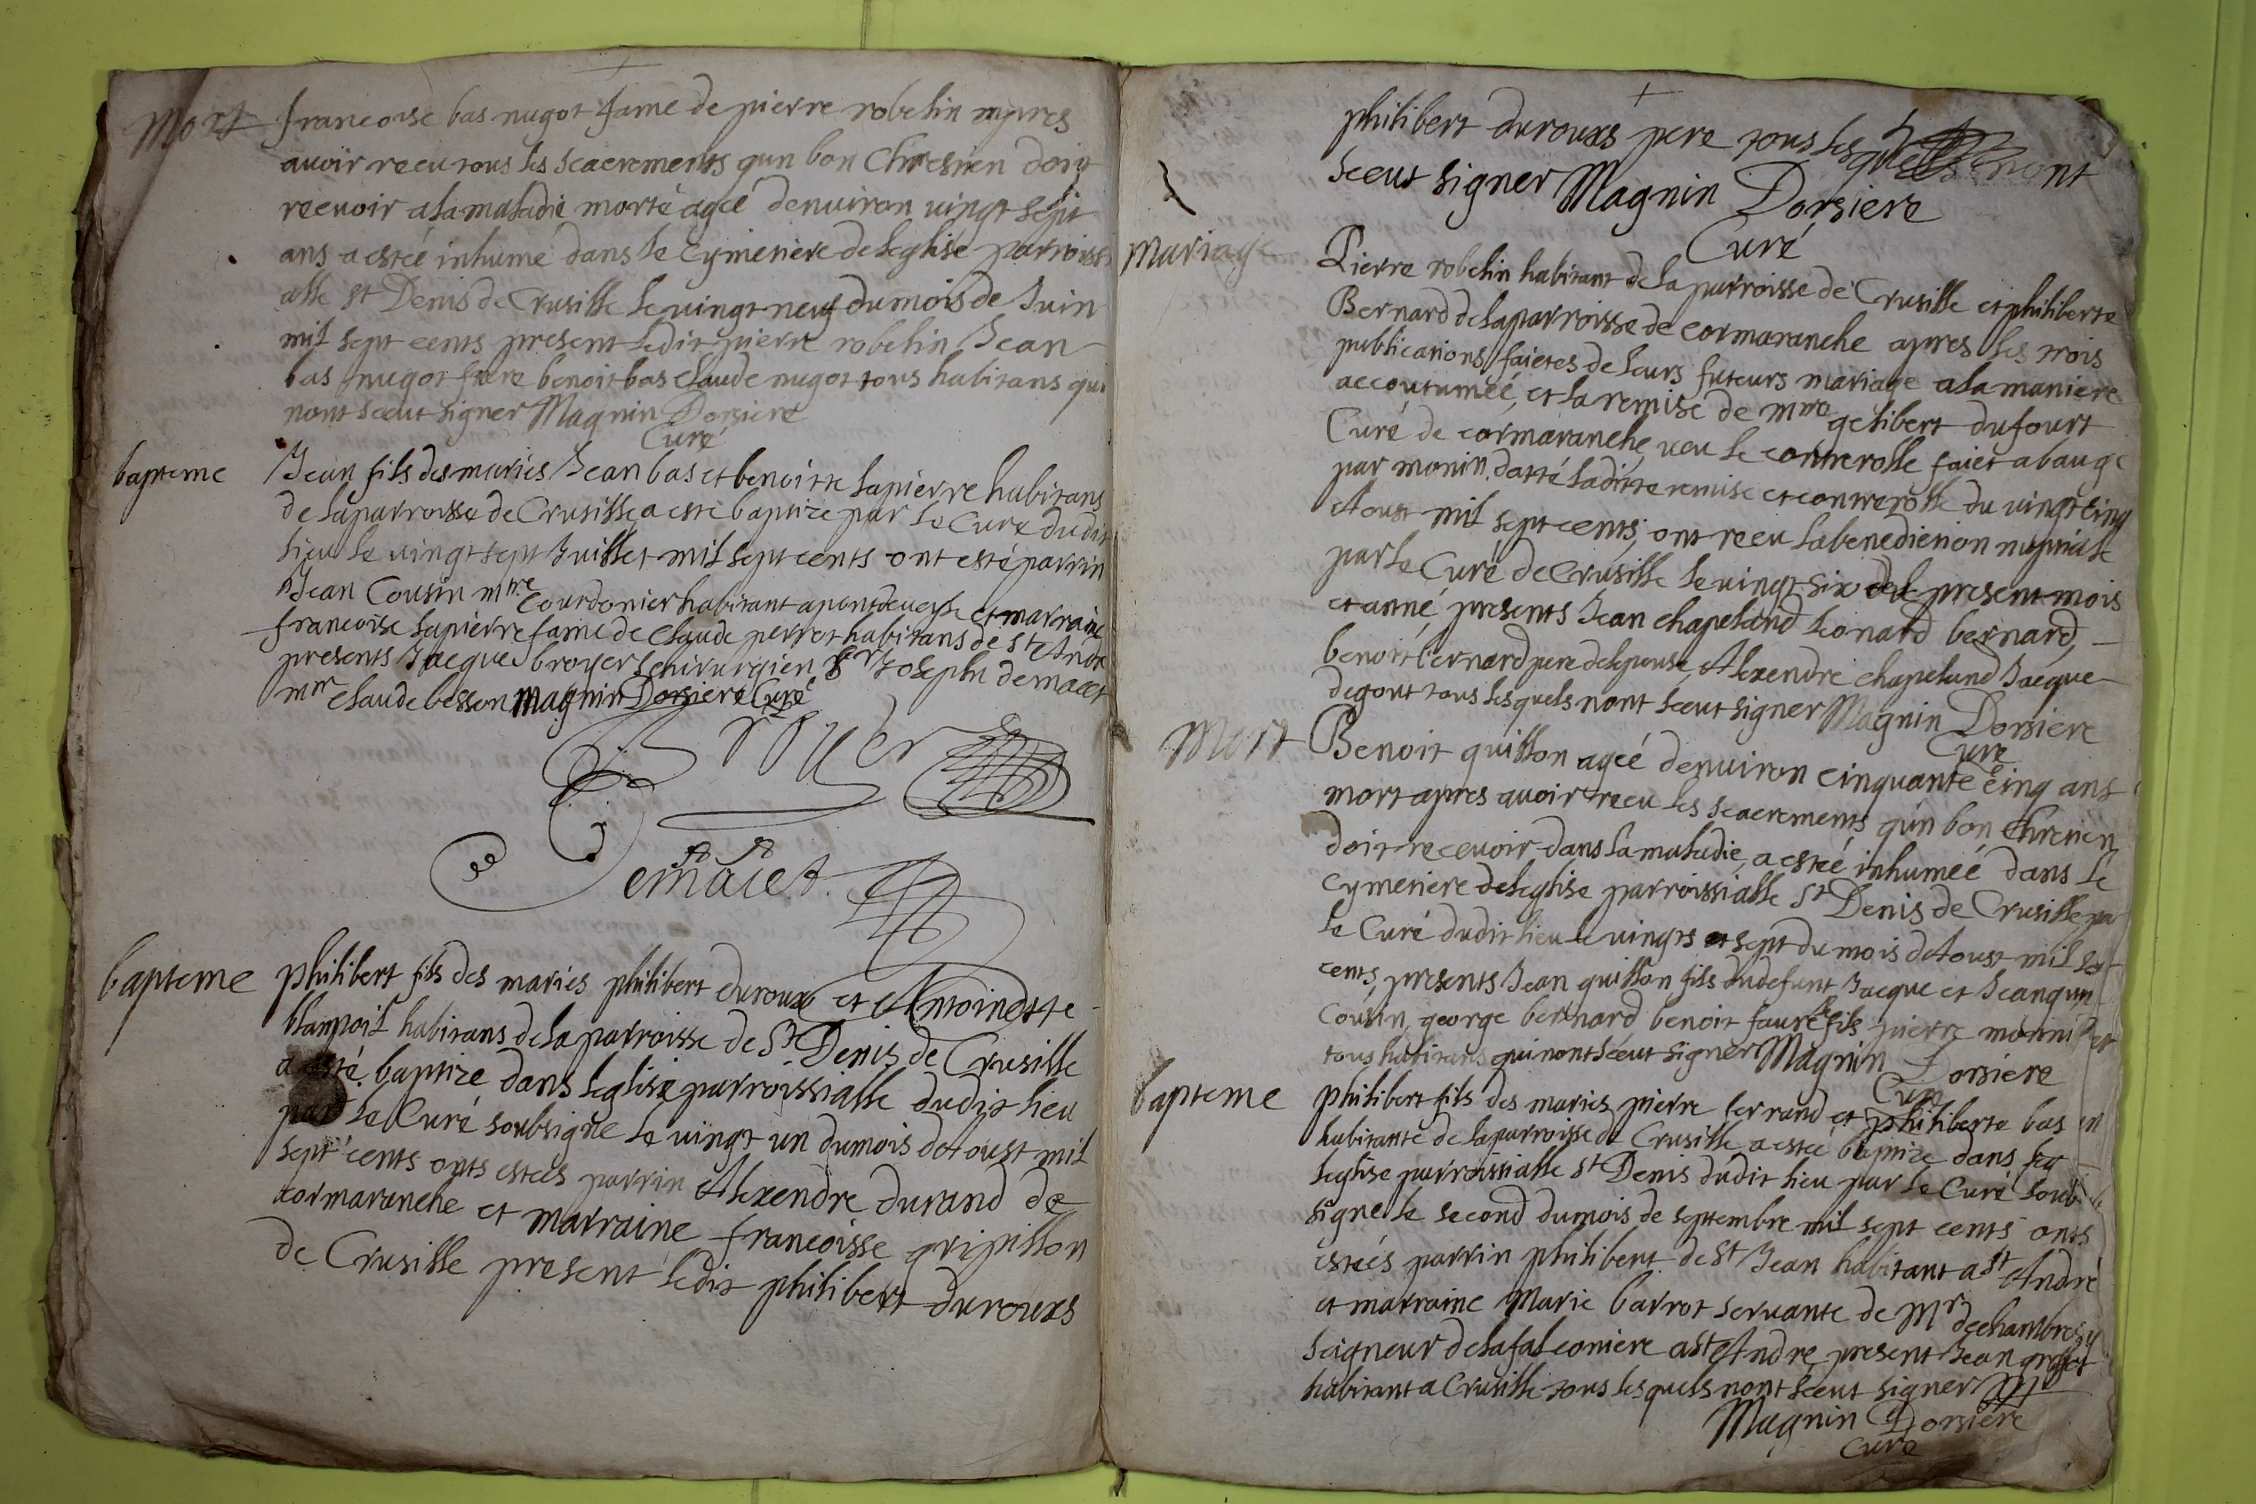 Mort
francoise bas nugot fame de pierre robelin apres
avoir receu tous les scacrements qun bon Chrestien doit
recevoir a la maladie morte agée denviron vingt sept
ans a estéé inhumé dans le Cymetiere de leglise parroissi
alle st Denis de Crusille le vingt neuf du mois de Juin
mil sept cents present ledit pierre robelin Jean
bas nugot frere benoit bas Claude nugot tous habitans qui
nont sceut signer Magnin Dorsiere
Curé
bapteme
Jean fils des mariés Jean bas et benoitte lapierre habitans
de la parroisse de Crusille a esté baptize par le Curé dudit
lieu le vingt sept Juillet mil sept cents ont esté parrin
Jean Cousin mtre Courdonier habitant a pontdevesle et marraine
francoise lapierre fame de Claude perrot habitans de St Andr
presents Jacque broyer Chirurgien Sr Joseph demacet
mtre Claude besson Magnin Dorsiere Curé
Broyer
Demacet
bapteme
philibert fils des mariés philibert durouxs et Antoinette
blampoil habitans de la parroisse de St Denis de Crusille
a esté baptize dans leglise parroissialle dudit lieu
par le Curé soubsigne le vingt un du mois dAoust mil
sept cents onts estéés parrin Alexendre durand de
cormaranche et marraine francoisse gripillon
de Crusille present ledit philibert durouxs
philibert durouxs pere tous lesquells nont
sceut signer Magnin Dorsiere
Curé
Mariage
Pierre robelin habitant de la parroisse de Crusille et philiberte
Bernard de la parroisse de cormaranche apres les trois
publications faictes de leurs futeurs mariage a la maniere
accoutuméé, et la remise de mre gelibert dufourt
Curé de cormaranche, veu le contrerolle faict a bauge
par monin datté laditte remise et contrerolle du vingt cinq
Aoust mil sept cents, ont receu la benediction nuptiale
par le Curé de Crusille le vingt six du present mois
et anné, presents Jean chapeland leonard bernard,
benoit bernard pere de lepouse, Alexendre chapeland Jacque
degout tous lesquels nont sceut signer Magnin Dorsiere
Curé
Mort
Benoit guillon agéé denviron cinquante cinq ans
mort apres avoir receu les scacrements qun bon Chretien
doit recevoir dans la maladie, a estéé inhuméé dans le
Cymetiere de leglise parroissialle St Denis de Crusille par
le Curé dudit lieu le vingts et sept du mois dAoust mil sept
cents, presents Jean guillon fils dudefunt Jacque et Jean
Cousin, george bernard benoit faure fils pierre
tous habitans qui nont sceut signer Magnin Dorsiere
Curé
bapteme
philibert fils des mariés pierre ferrand et philiberte bas
habitante de la parroisse de Crusille a estéé baptize dans
leglise parroissialle St Denis dudit lieu par le Curé soub
signe le second du mois de septembre mil sept cents onts
estéés parrin philibert de St Jean habitant a St André
et marraine Marie barrot servante de Mr dechambre
seigneur de la falconiere a St Andre present Jean
habitant a Crusille tous lesquels nont sceut signer
Magnin Dorsiere
Curé